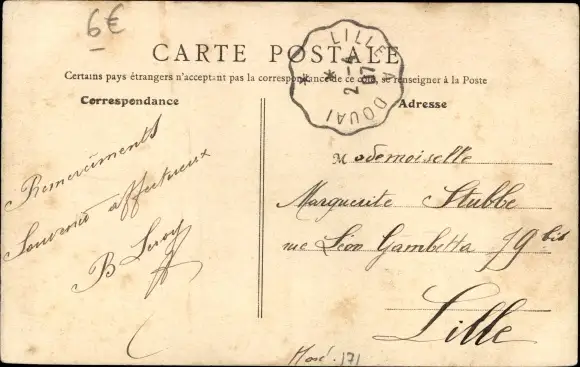 6€
CARTE POSTALE
Certains pays étrangers n'acceptant pas la correspondance de ce côté, se renseigner à la Poste
LILLE A DOUAI
2 - 4
07
Correspondance
Adresse
Remerciements
Souvenir affectueux
B Leroy
Mademoiselle
Marguerite Stubbe
rue Léon Gambetta 79 bis
Lille
171